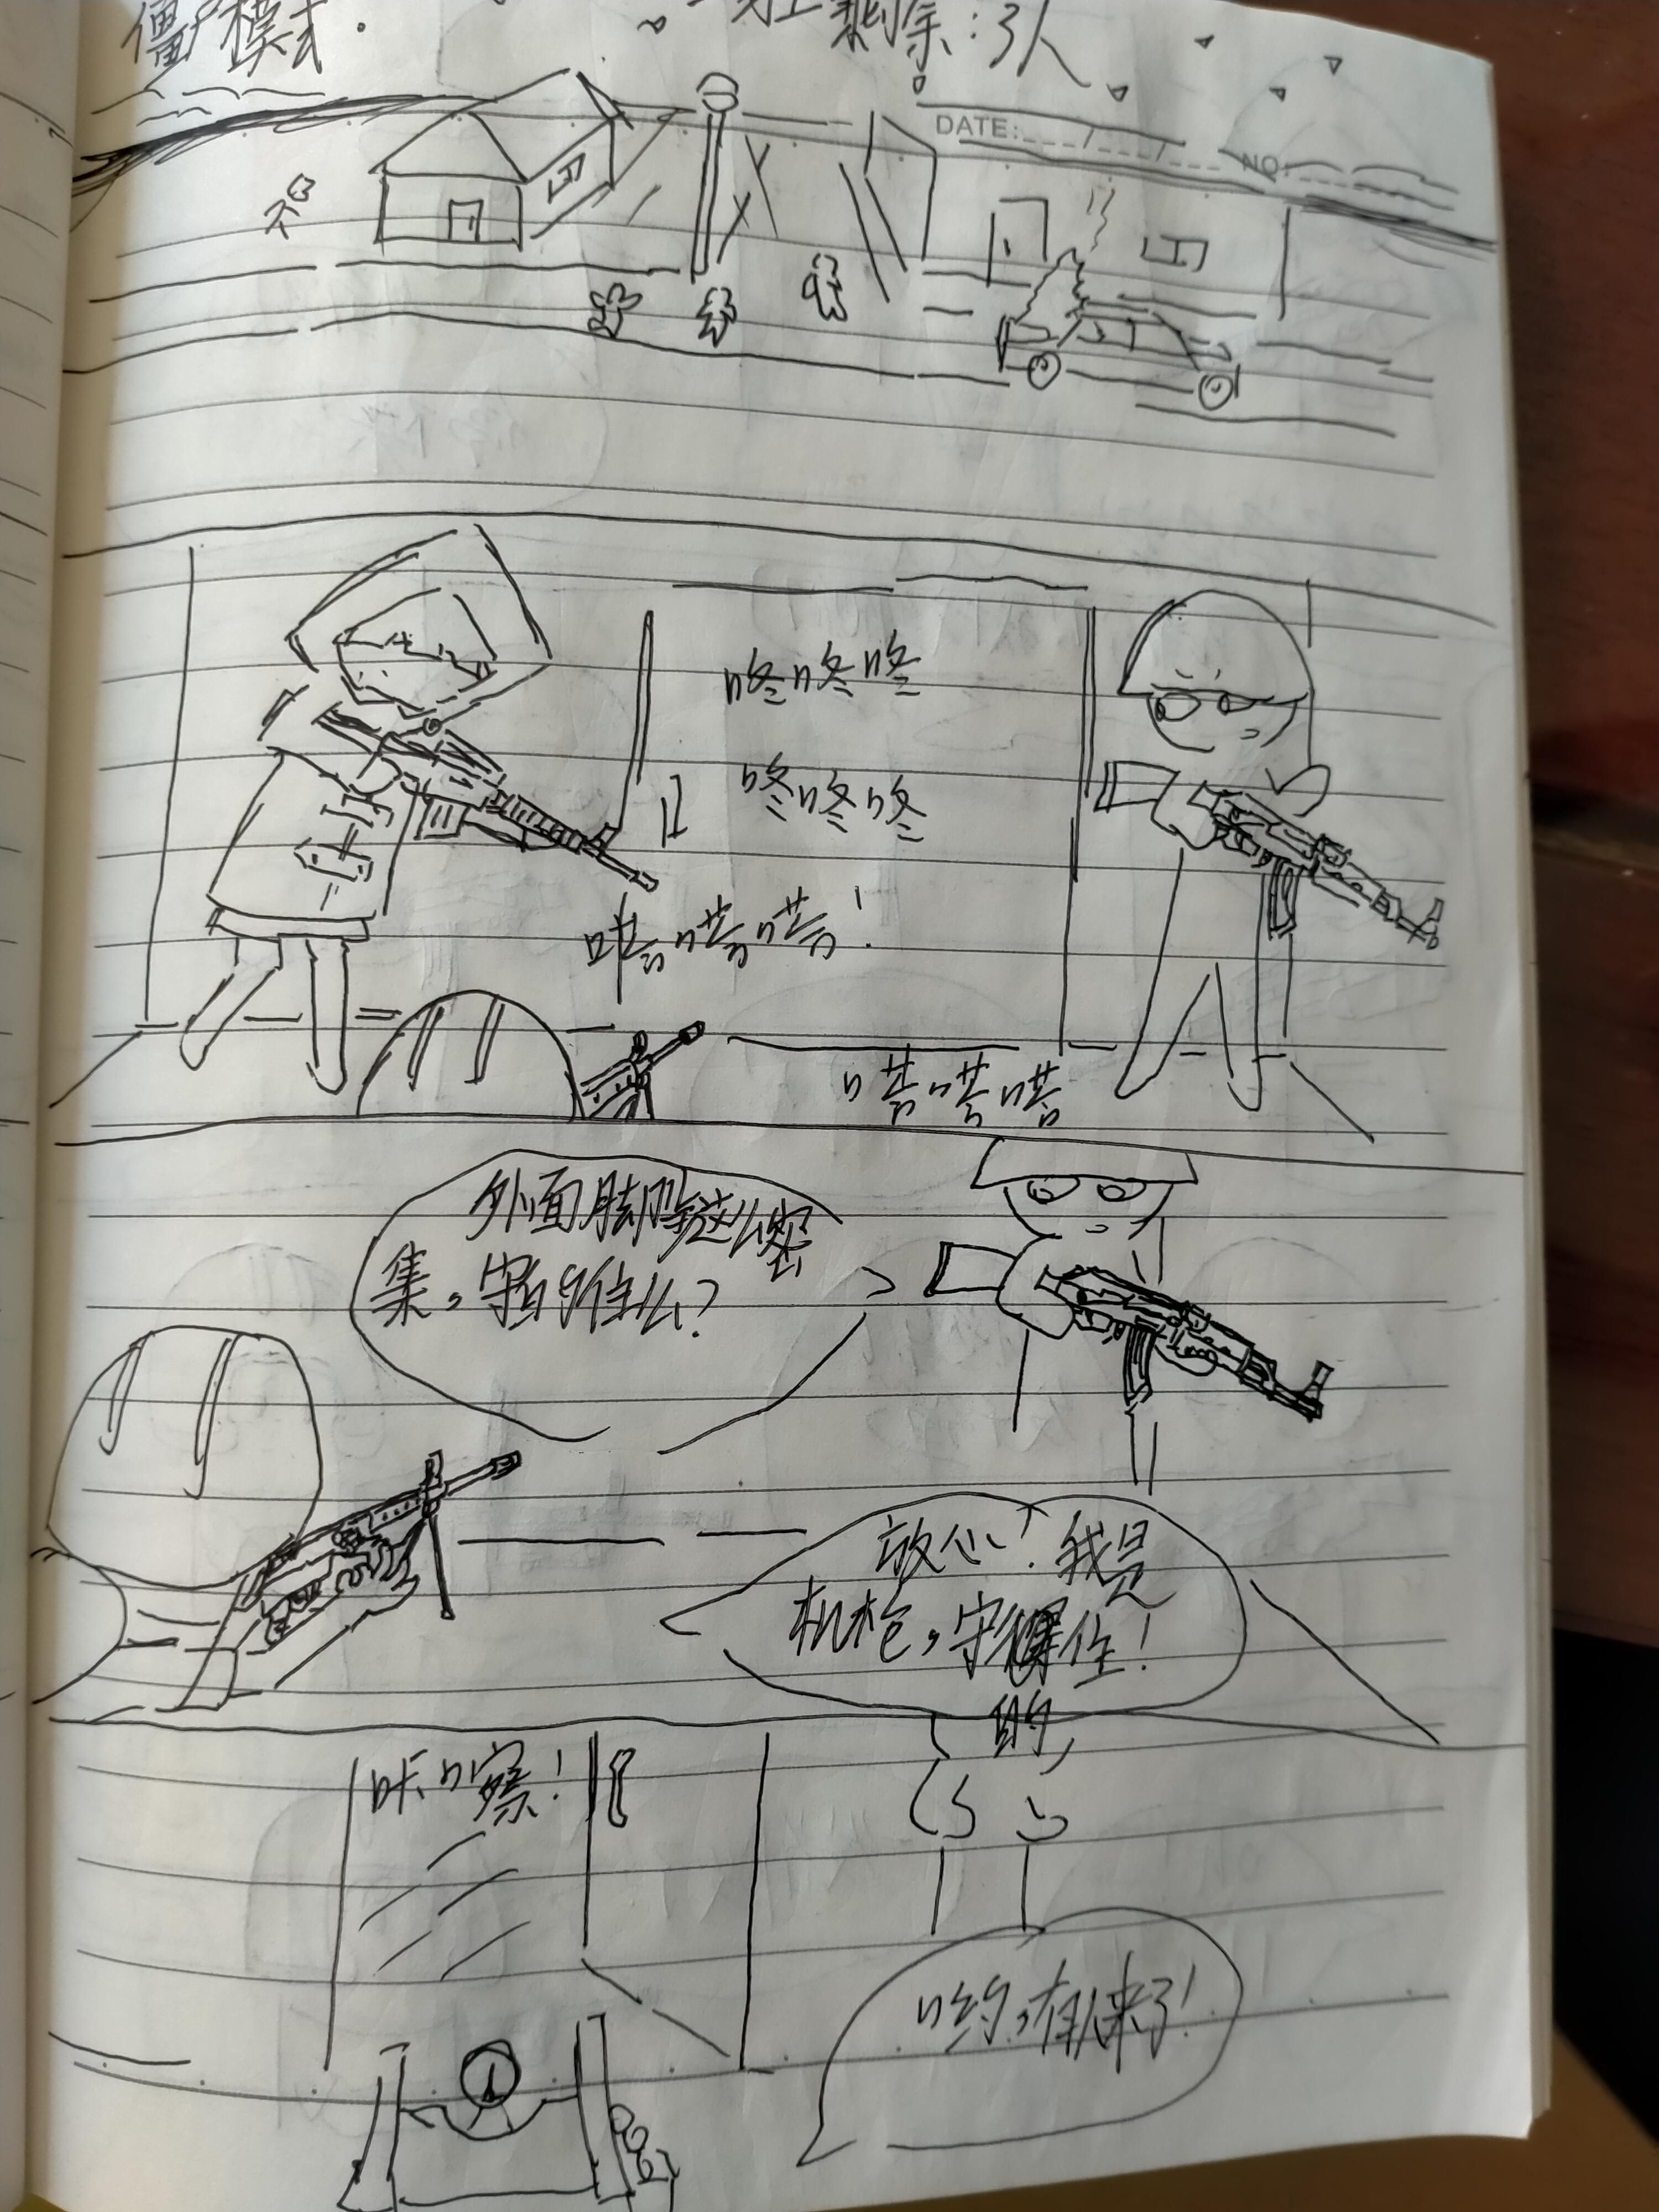 僵尸模式.
剩余:3人
DATE: / /
NO:
咚咚咚
咚咚咚
嗒嗒嗒!
嗒嗒嗒
外面脚步这么密
集,守的住么?
放心!我是
机枪,守得住!
的,
咔嚓!
哟,有人来了!